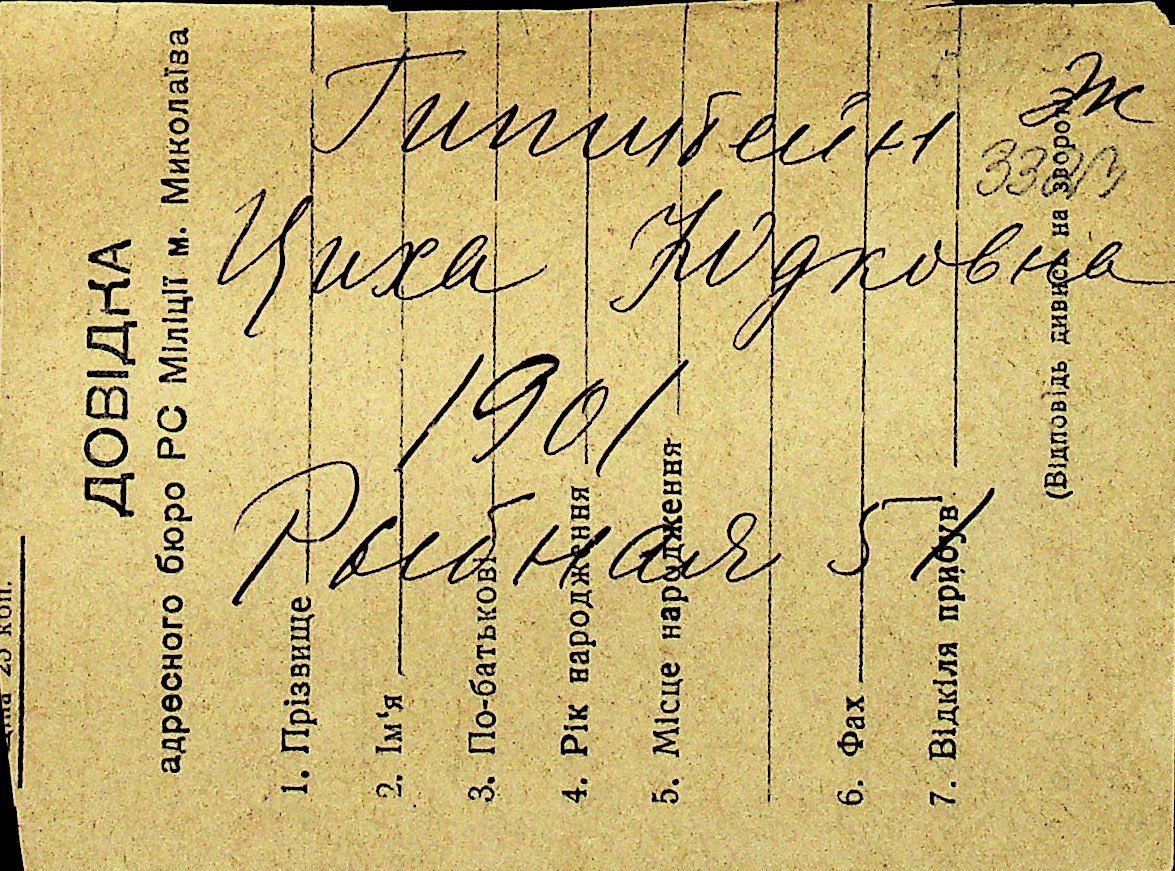 Гипштейн Ж
Циха Юдковна
1901
Рыбная 51
ДОВІДКА
адресного бюро РС Міліції м. Миколаїва
1. Прізвище
2. Ім'я
3. По-батькові
4. Рік народження
5. Місце народження
6. Фах
7. Відкіля прибув
(Відповідь дивись на зворот
коп.